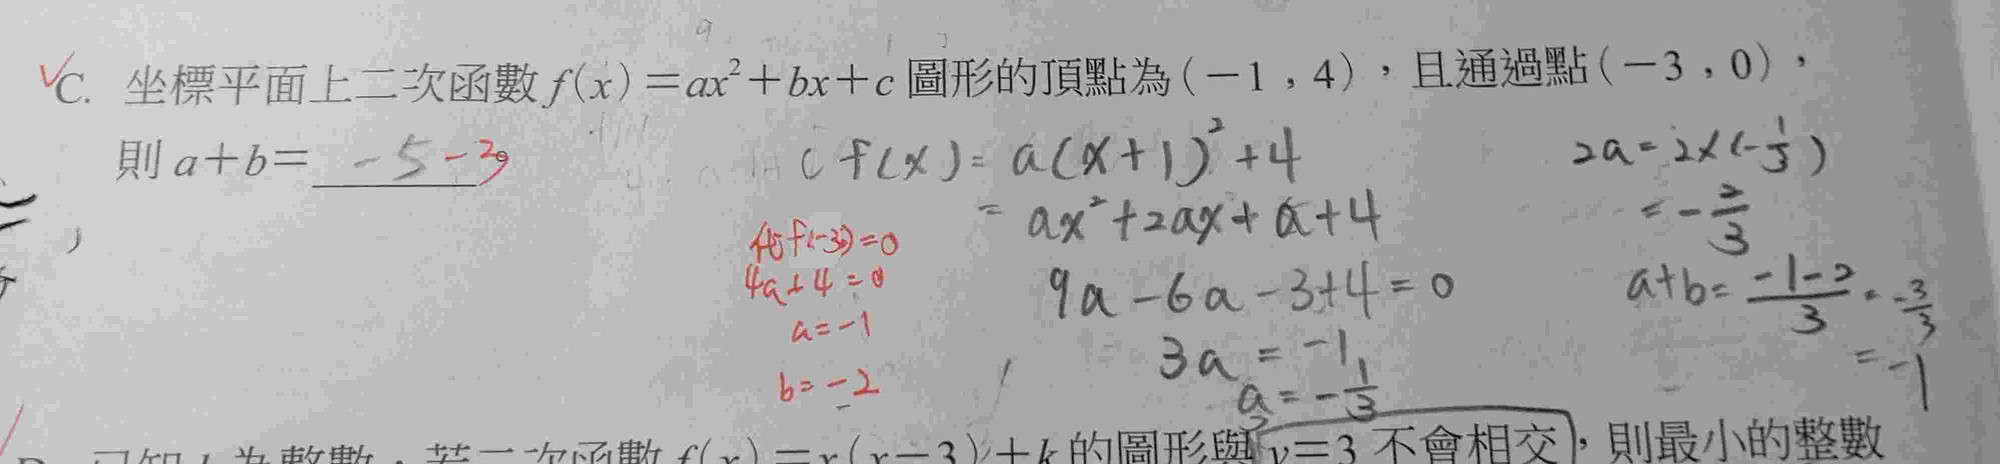 C. 坐標平面上二次函數 f(x)=ax²+bx+c 圖形的頂點為(-1,4),且通過點(-3,0),
則 a+b= -5 -3
f(x)= a(x+1)²+4
= ax²+2ax+a+4
9a-6a-3+4=0
3a=-1
a=-1/3
2a=2×(-1/3)
=-2/3
a+b=(-1-2)/3=-3/3
=-1
f(-3)=0
4a+4=0
a=-1
b=-2
為整數,若二次函數 f(x)=x(x-3)+k 的圖形與 y=3 不會相交,則最小的整數